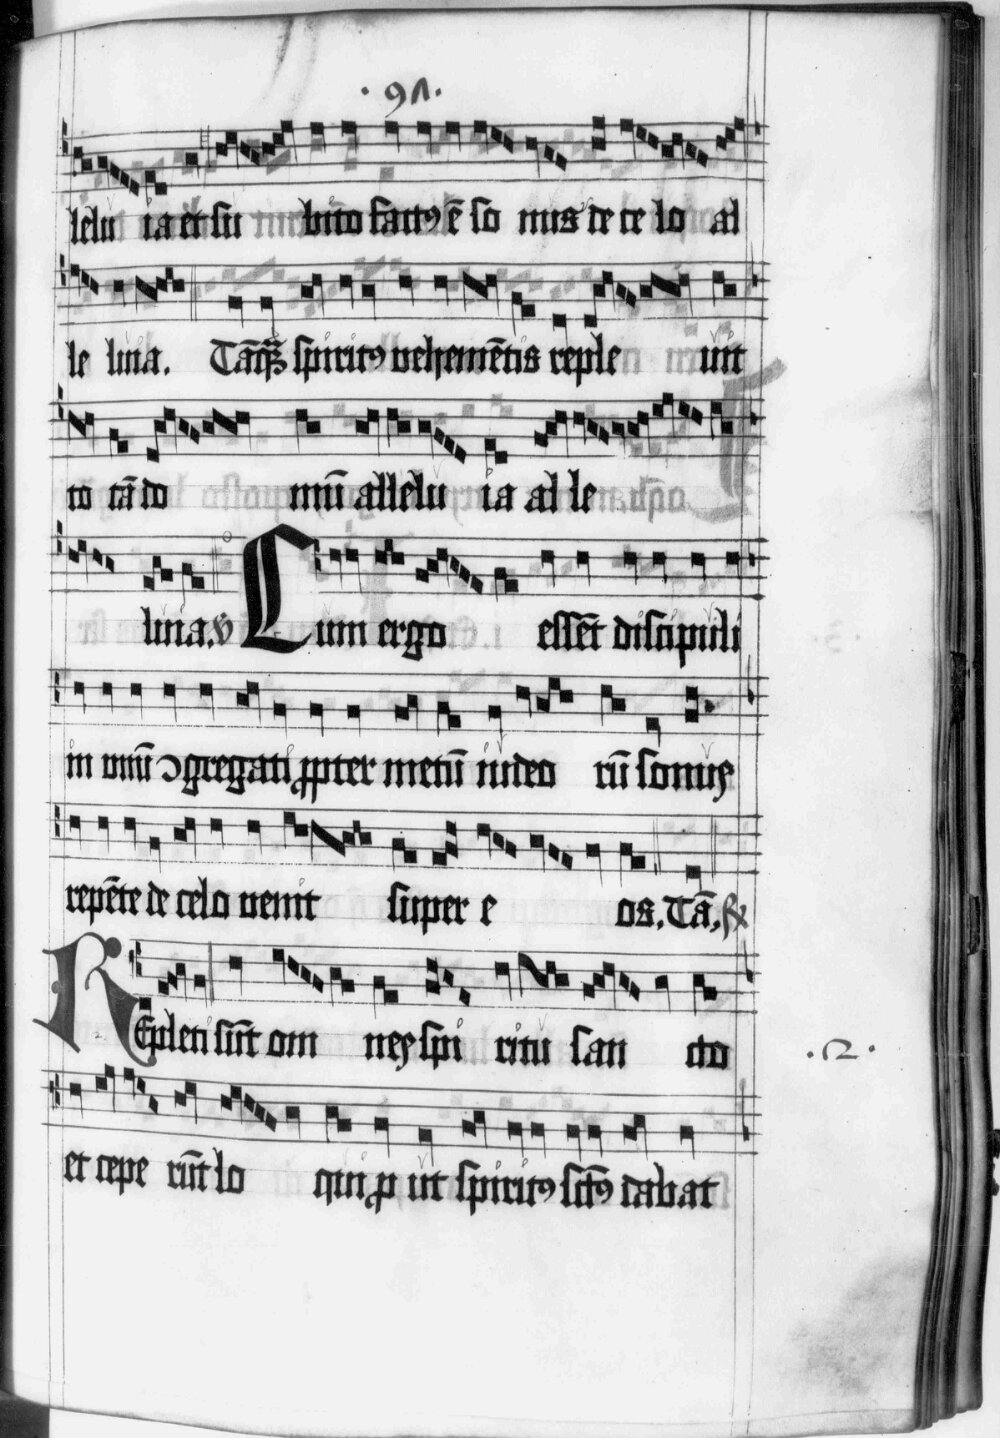 · 91 ·
lelu ia et su bito factꝯ ē so nus de ce lo al
le luia. Tāqȝ spiritꝯ vehemētis reple uit
to tā do mū allelu ia al le
luia. ꝟ Cum ergo essēt discipuli
in vnū ↄgregati ꝓpter metū iudeo rū sonus
repēte de celo venit super e os. Tā. ℟
REpleti sūt om nes spi ritu san cto
· 2 ·
et cepe rūt lo qui ꝓ ut spiritꝯ sctꝯ dabat